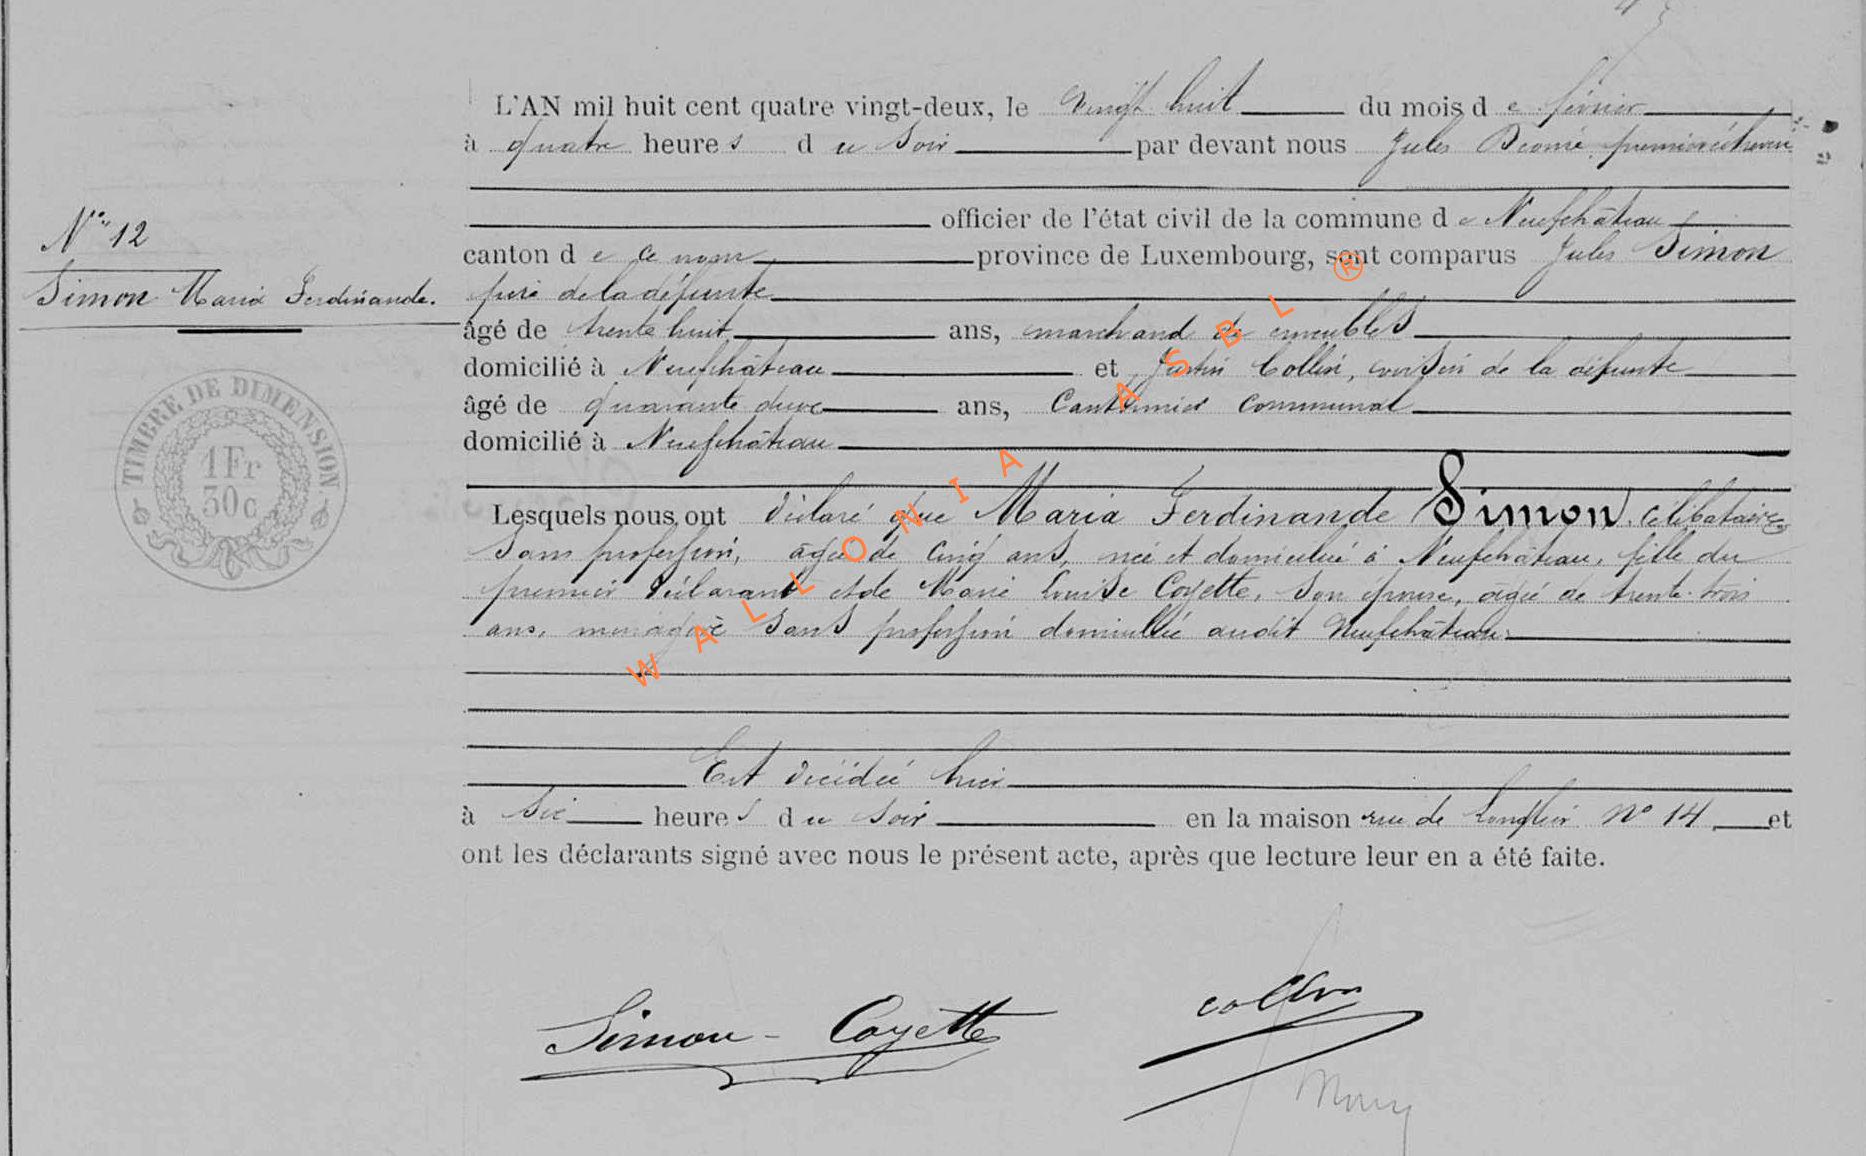 L'AN mil huit cent quatre vingt-deux, le vingt huit du mois de février
à quatre heures du soir par devant nous Jules premier échevin
officier de l'état civil de la commune de Neufchâteau
canton de ce nom province de Luxembourg, sont comparus Jules Simon
père de la défunte
âgé de trente huit ans, marchand de meubles
domicilié à Neufchâteau et Justin Collin, voisin de la défunte
âgé de quarante deux ans, Cantonnier communal
domicilié à Neufchâteau
N° 12
Simon Maria Ferdinande.
TIMBRE DE DIMENSION
1 Fr
30c
Lesquels nous ont déclaré que Maria Ferdinande Simon, célibataire
sans profession, âgée de cinq ans, née et domiciliée à Neufchâteau, fille du
premier déclarant et de Marie Louise Coyette, son épouse, âgée de trente-trois
ans, ménagère sans profession domiciliée audit Neufchâteau
Est décédée hier
à six heures du soir en la maison rue de Longlier N° 14, et
ont les déclarants signé avec nous le présent acte, après que lecture leur en a été faite.
Simon - Coyette
Collin
WALLONIA ASBL ®